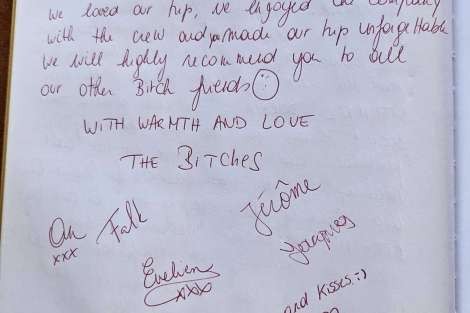 We loved our trip, we enjoyed the company
with the crew and you made our trip unforgettable
We will highly recommend you to all
our other Bitch friends
WITH WARMTH AND LOVE
THE BITCHES
An Falk Jérôme
xxx
Evelien
xxx
and Kisses :)